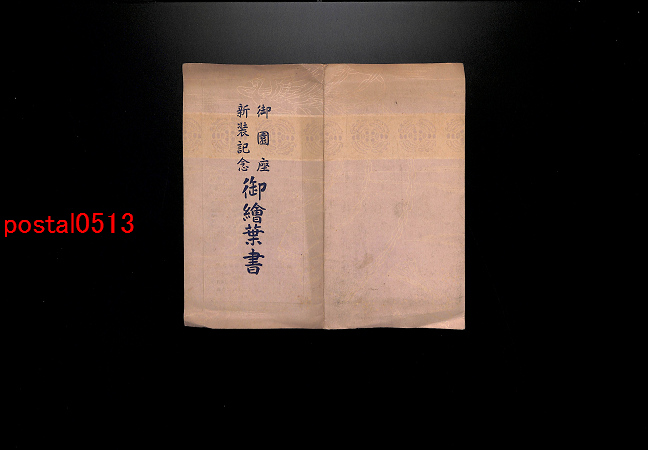 御園座
新装記念
御繪葉書
postal0513